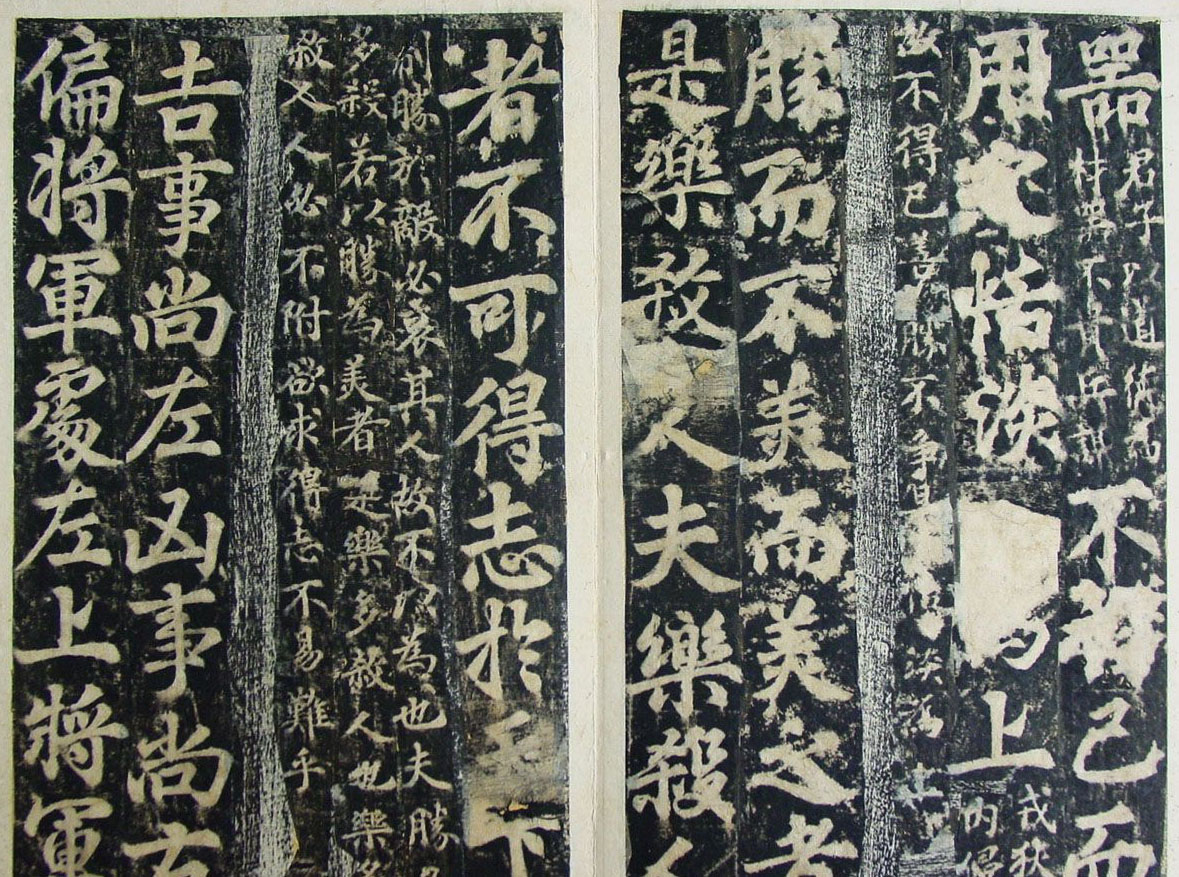 器
君子以道德為
材器不用兵謀
不得已而
用之恬淡
為上
戎狄
內侵
故不得已善勝不爭是恬淡為上
勝而不美而美之者
是樂殺人夫樂殺人
者不可得志於天下
制勝於敵必哀其人故不以為也夫勝
多殺若以勝為美者是樂多殺人也樂多
殺人人必不附欲求得志不易難乎
吉事尚左凶事尚右
偏將軍處左上將軍